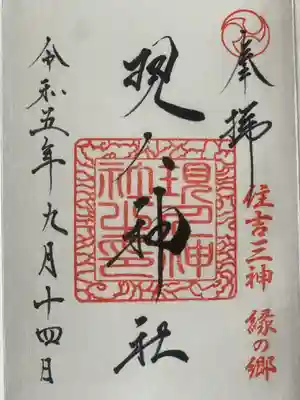 奉拝
住吉三神 縁の郷
現人神社
令和五年九月十四日